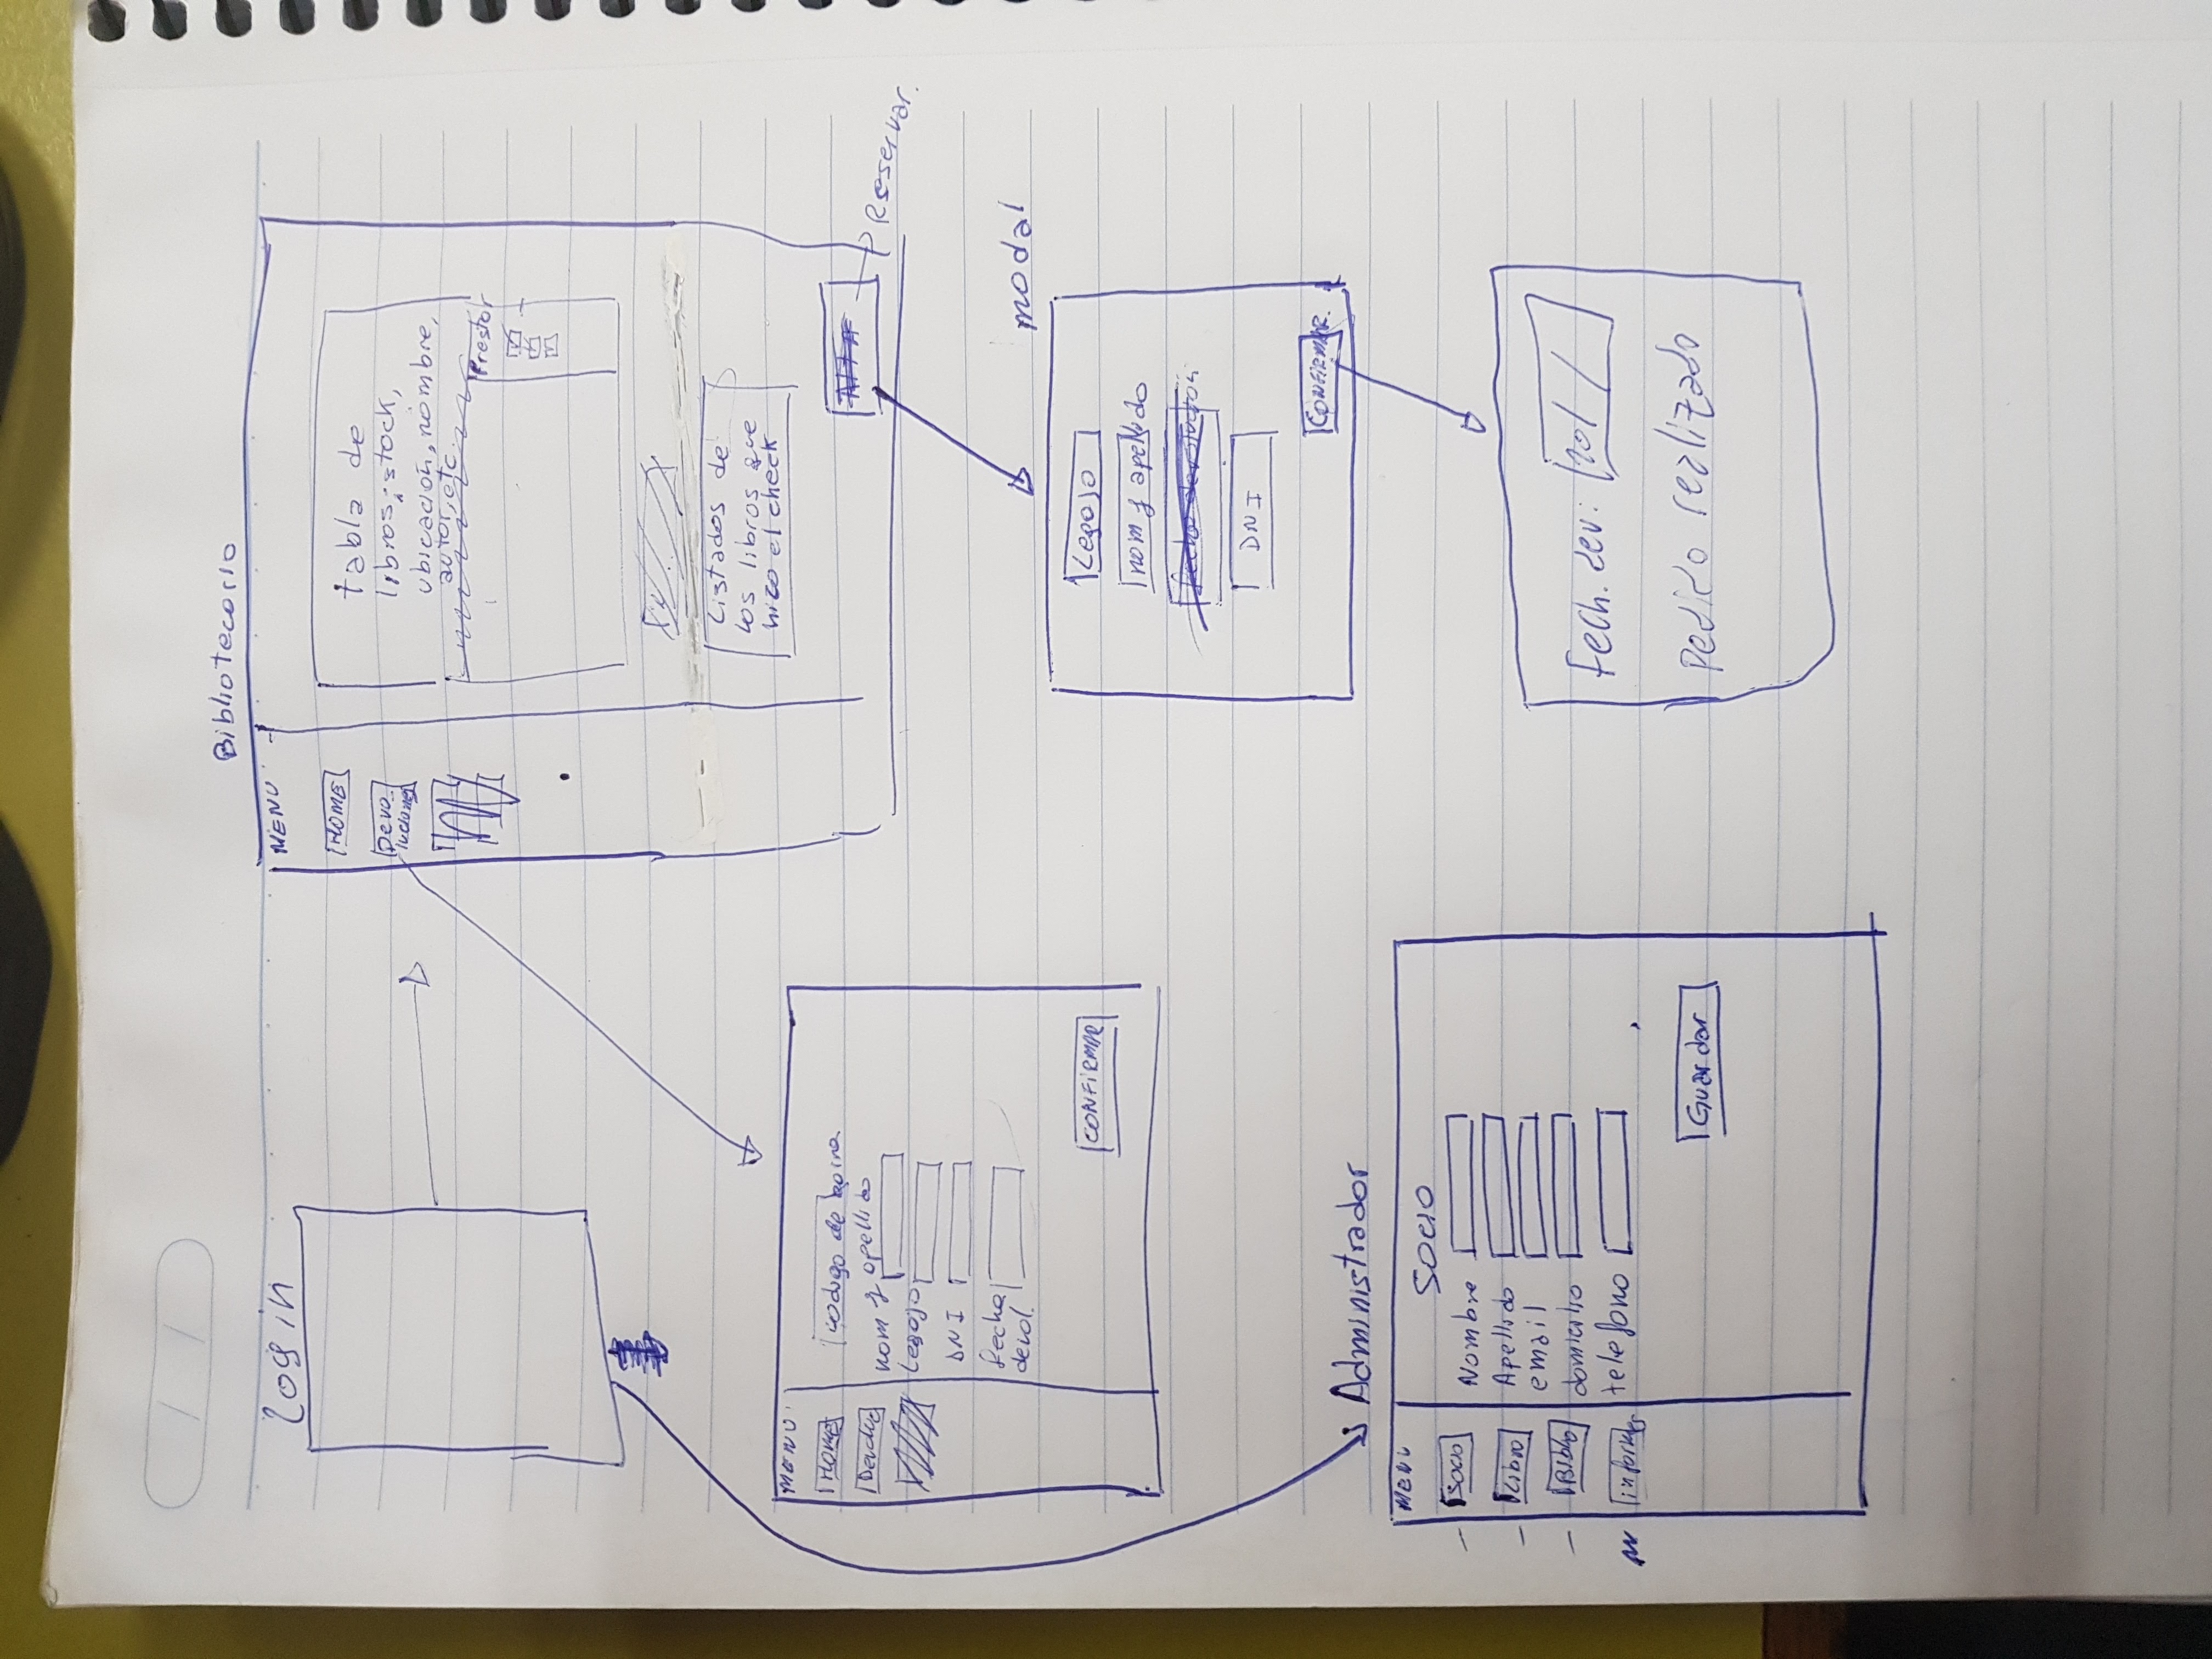 Login
Bibliotecario
MENU
HOME
Devo
luciones
tabla de
libros; stock,
ubicación, nombre,
autor, etc.
Prestar
Listados de
los libros que
hizo el check
Reservar.
MENU
Home
código de barra
nom y apellido
Legajo
DNI
fecha
devol.
CONFIRMAR
modal
Legajo
nom y apellido
fecha devolución
DNI
CONFIRMAR.
Fech. dev: 20/ /
Pedido realizado
Administrador
MENU
Socio
Libro
Biblio
informes
Socio
Nombre
Apellido
email
domicilio
telefono
Guardar